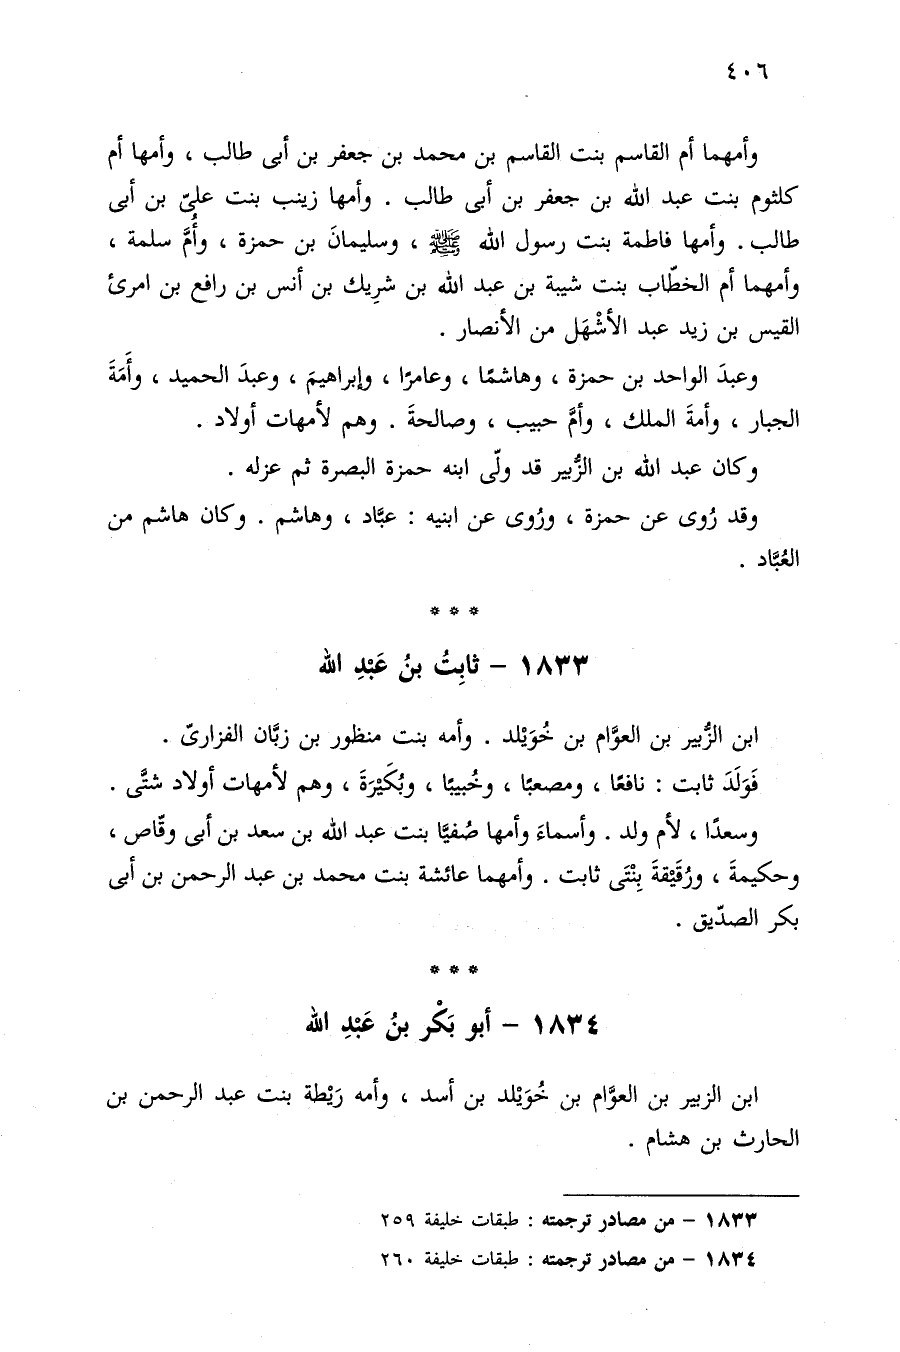 ٤٠٦
وأمهما أم القاسم بنت القاسم بن محمد بن جعفر بن أبى طالب ، وأمها أم
كلثوم بنت عبد الله بن جعفر بن أبى طالب . وأمها زينب بنت علىّ بن أبى
طالب . وأمها فاطمة بنت رسول الله ﷺ ، وسليمانَ بن حمزة ، وأُمَّ سلمة ،
وأمهما أم الخطّاب بنت شيبة بن عبد الله بن شريك بن أنس بن رافع بن امرئ
القيس بن زيد عبد الأشْهَل من الأنصار .
وعبدَ الواحد بن حمزة ، وهاشمًا ، وعامرًا ، وإبراهيمَ ، وعبدَ الحميد ، وأَمَةَ
الجبار ، وأمةَ الملك ، وأمَّ حبيب ، وصالحةَ . وهم لأمهات أولاد .
وكان عبد الله بن الزُّبير قد ولّى ابنه حمزة البصرة ثم عزله .
وقد رُوى عن حمزة ، ورُوى عن ابنيه : عبَّاد ، وهاشم . وكان هاشم من
العُبَّاد .
* * *
١٨٣٣ - ثابِتُ بنُ عَبْدِ الله
ابن الزُّبير بن العوَّام بن خُوَيْلد . وأمه بنت منظور بن زبَّان الفزارىّ .
فَوَلَدَ ثابت : نافعًا ، ومصعبًا ، وخُبيبًا ، وبُكَيْرَةَ ، وهم لأمهات أولاد شتَّى .
وسعدًا ، لأم ولد . وأسماءَ وأمها صُفيَّا بنت عبد الله بن سعد بن أبى وقّاص ،
وحكيمةَ ، ورُقَيْقةَ بِنْتَى ثابت . وأمهما عائشة بنت محمد بن عبد الرحمن بن أبى
بكر الصدّيق .
* * *
١٨٣٤ - أبو بَكْر بنُ عَبْدِ الله
ابن الزبير بن العوَّام بن خُوَيْلد بن أسد ، وأمه رَيْطة بنت عبد الرحمن بن
الحارث بن هشام .
١٨٣٣ - من مصادر ترجمته : طبقات خليفة ٢٥٩
١٨٣٤ - من مصادر ترجمته : طبقات خليفة ٢٦٠